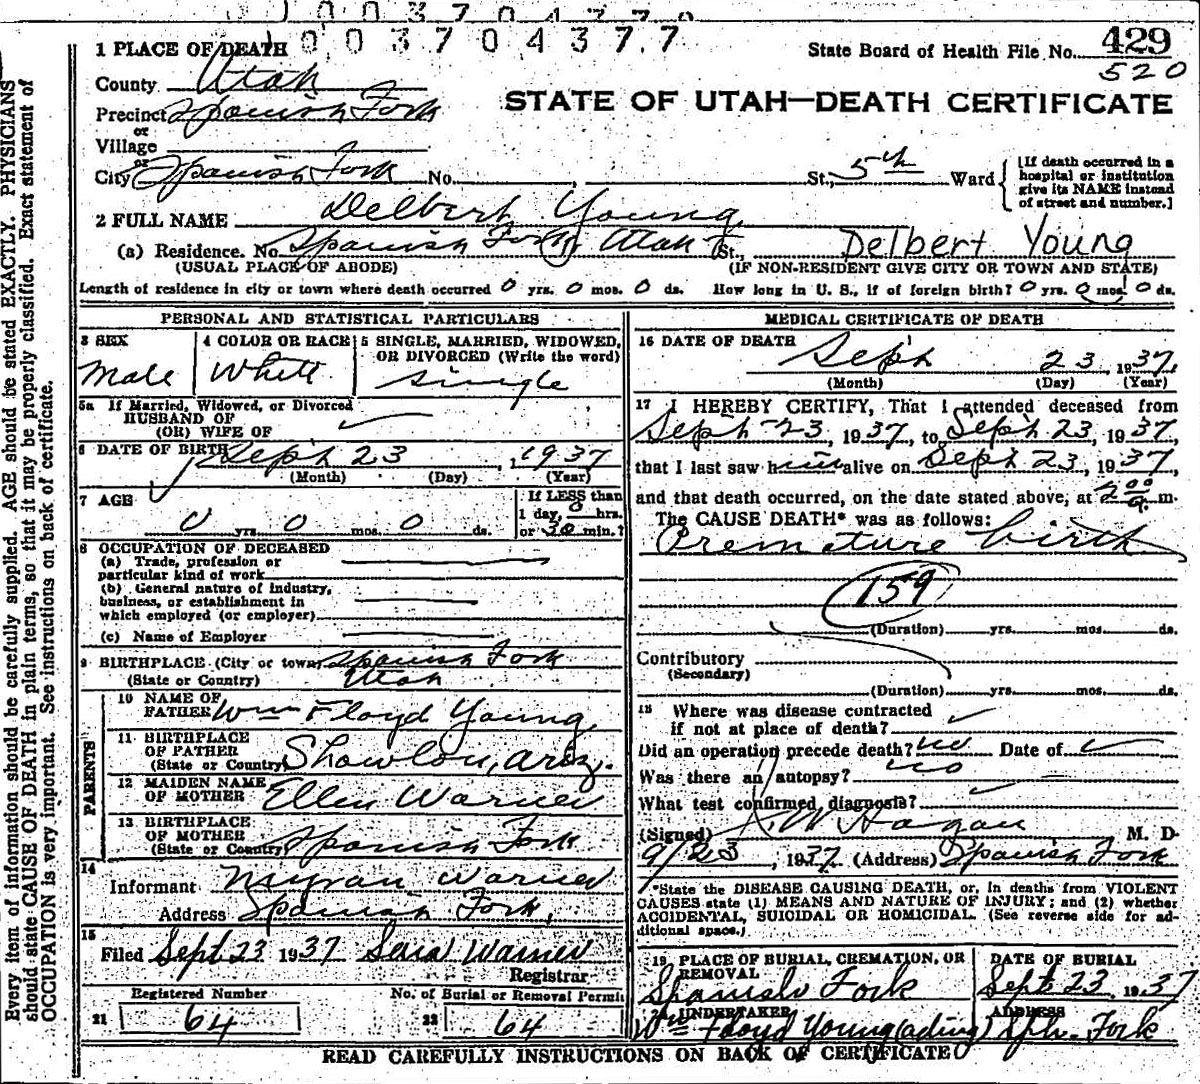 003704377
1 PLACE OF DEATH
State Board of Health File No. 429
County Utah
520
STATE OF UTAH—DEATH CERTIFICATE
Precinct Spanish Fork
or
Village
or
City Spanish Fork No. , St., 5th Ward
[If death occurred in a hospital or institution give its NAME instead of street and number.]
2 FULL NAME Delbert Young
(a) Residence. No. Spanish Fork, Utah St., Delbert Young
(USUAL PLACE OF ABODE) (IF NON-RESIDENT GIVE CITY OR TOWN AND STATE)
Length of residence in city or town where death occurred 0 yrs. 0 mos. 0 ds. How long in U. S., if of foreign birth? 0 yrs. 0 mos. 0 ds.
PERSONAL AND STATISTICAL PARTICULARS
3 SEX Male
4 COLOR OR RACE White
5 SINGLE, MARRIED, WIDOWED, OR DIVORCED (Write the word) Single
5a If Married, Widowed, or Divorced
HUSBAND OF
(OR) WIFE OF
6 DATE OF BIRTH Sept 23, 1937
(Month) (Day) (Year)
7 AGE
0 yrs. 0 mos. 0 ds.
If LESS than
1 day, 0 hrs.
or 30 min.?
8 OCCUPATION OF DECEASED
(a) Trade, profession or
particular kind of work
(b) General nature of industry,
business, or establishment in
which employed (or employer)
(c) Name of Employer
9 BIRTHPLACE (City or town) Spanish Fork
(State or Country) Utah
PARENTS
10 NAME OF
FATHER Wm Floyd Young
11 BIRTHPLACE
OF FATHER
(State or Country) Showlou, Ariz.
12 MAIDEN NAME
OF MOTHER Ellen Warner
13 BIRTHPLACE
OF MOTHER
(State or Country) Spanish Fork
14
Informant Myran Warner
Address Spanish Fork,
15
Filed Sept 23 1937 Sara Warner
Registrar
Registered Number
21 64
No. of Burial or Removal Permit
22 64
MEDICAL CERTIFICATE OF DEATH
16 DATE OF DEATH Sept 23, 1937,
(Month) (Day) (Year)
17 I HEREBY CERTIFY, That I attended deceased from
Sept 23, 1937, to Sept 23, 1937,
that I last saw him alive on Sept 23, 1937,
and that death occurred, on the date stated above, at 2 00 a. m.
The CAUSE DEATH* was as follows:
Premature birth
159
(Duration) yrs. mos. ds.
Contributory
(Secondary)
(Duration) yrs. mos. ds.
18 Where was disease contracted
if not at place of death?
Did an operation precede death? no Date of
Was there an autopsy? no
What test confirmed diagnosis?
(Signed) Hagan M. D.
9/23, 1937 (Address) Spanish Fork
*State the DISEASE CAUSING DEATH, or, in deaths from VIOLENT
CAUSES state (1) MEANS AND NATURE OF INJURY; and (2) whether
ACCIDENTAL, SUICIDAL OR HOMICIDAL. (See reverse side for ad-
ditional space.)
19 PLACE OF BURIAL, CREMATION, OR
REMOVAL
Spanish Fork
DATE OF BURIAL
Sept 23, 1937
UNDERTAKER
Wm Floyd Young (acting)
ADDRESS
Sph. Fork
READ CAREFULLY INSTRUCTIONS ON BACK OF CERTIFICATE
Every item of information should be carefully supplied. AGE should be stated EXACTLY. PHYSICIANS
should state CAUSE OF DEATH in plain terms, so that it may be properly classified. Exact statement of
OCCUPATION is very important. See instructions on back of certificate.